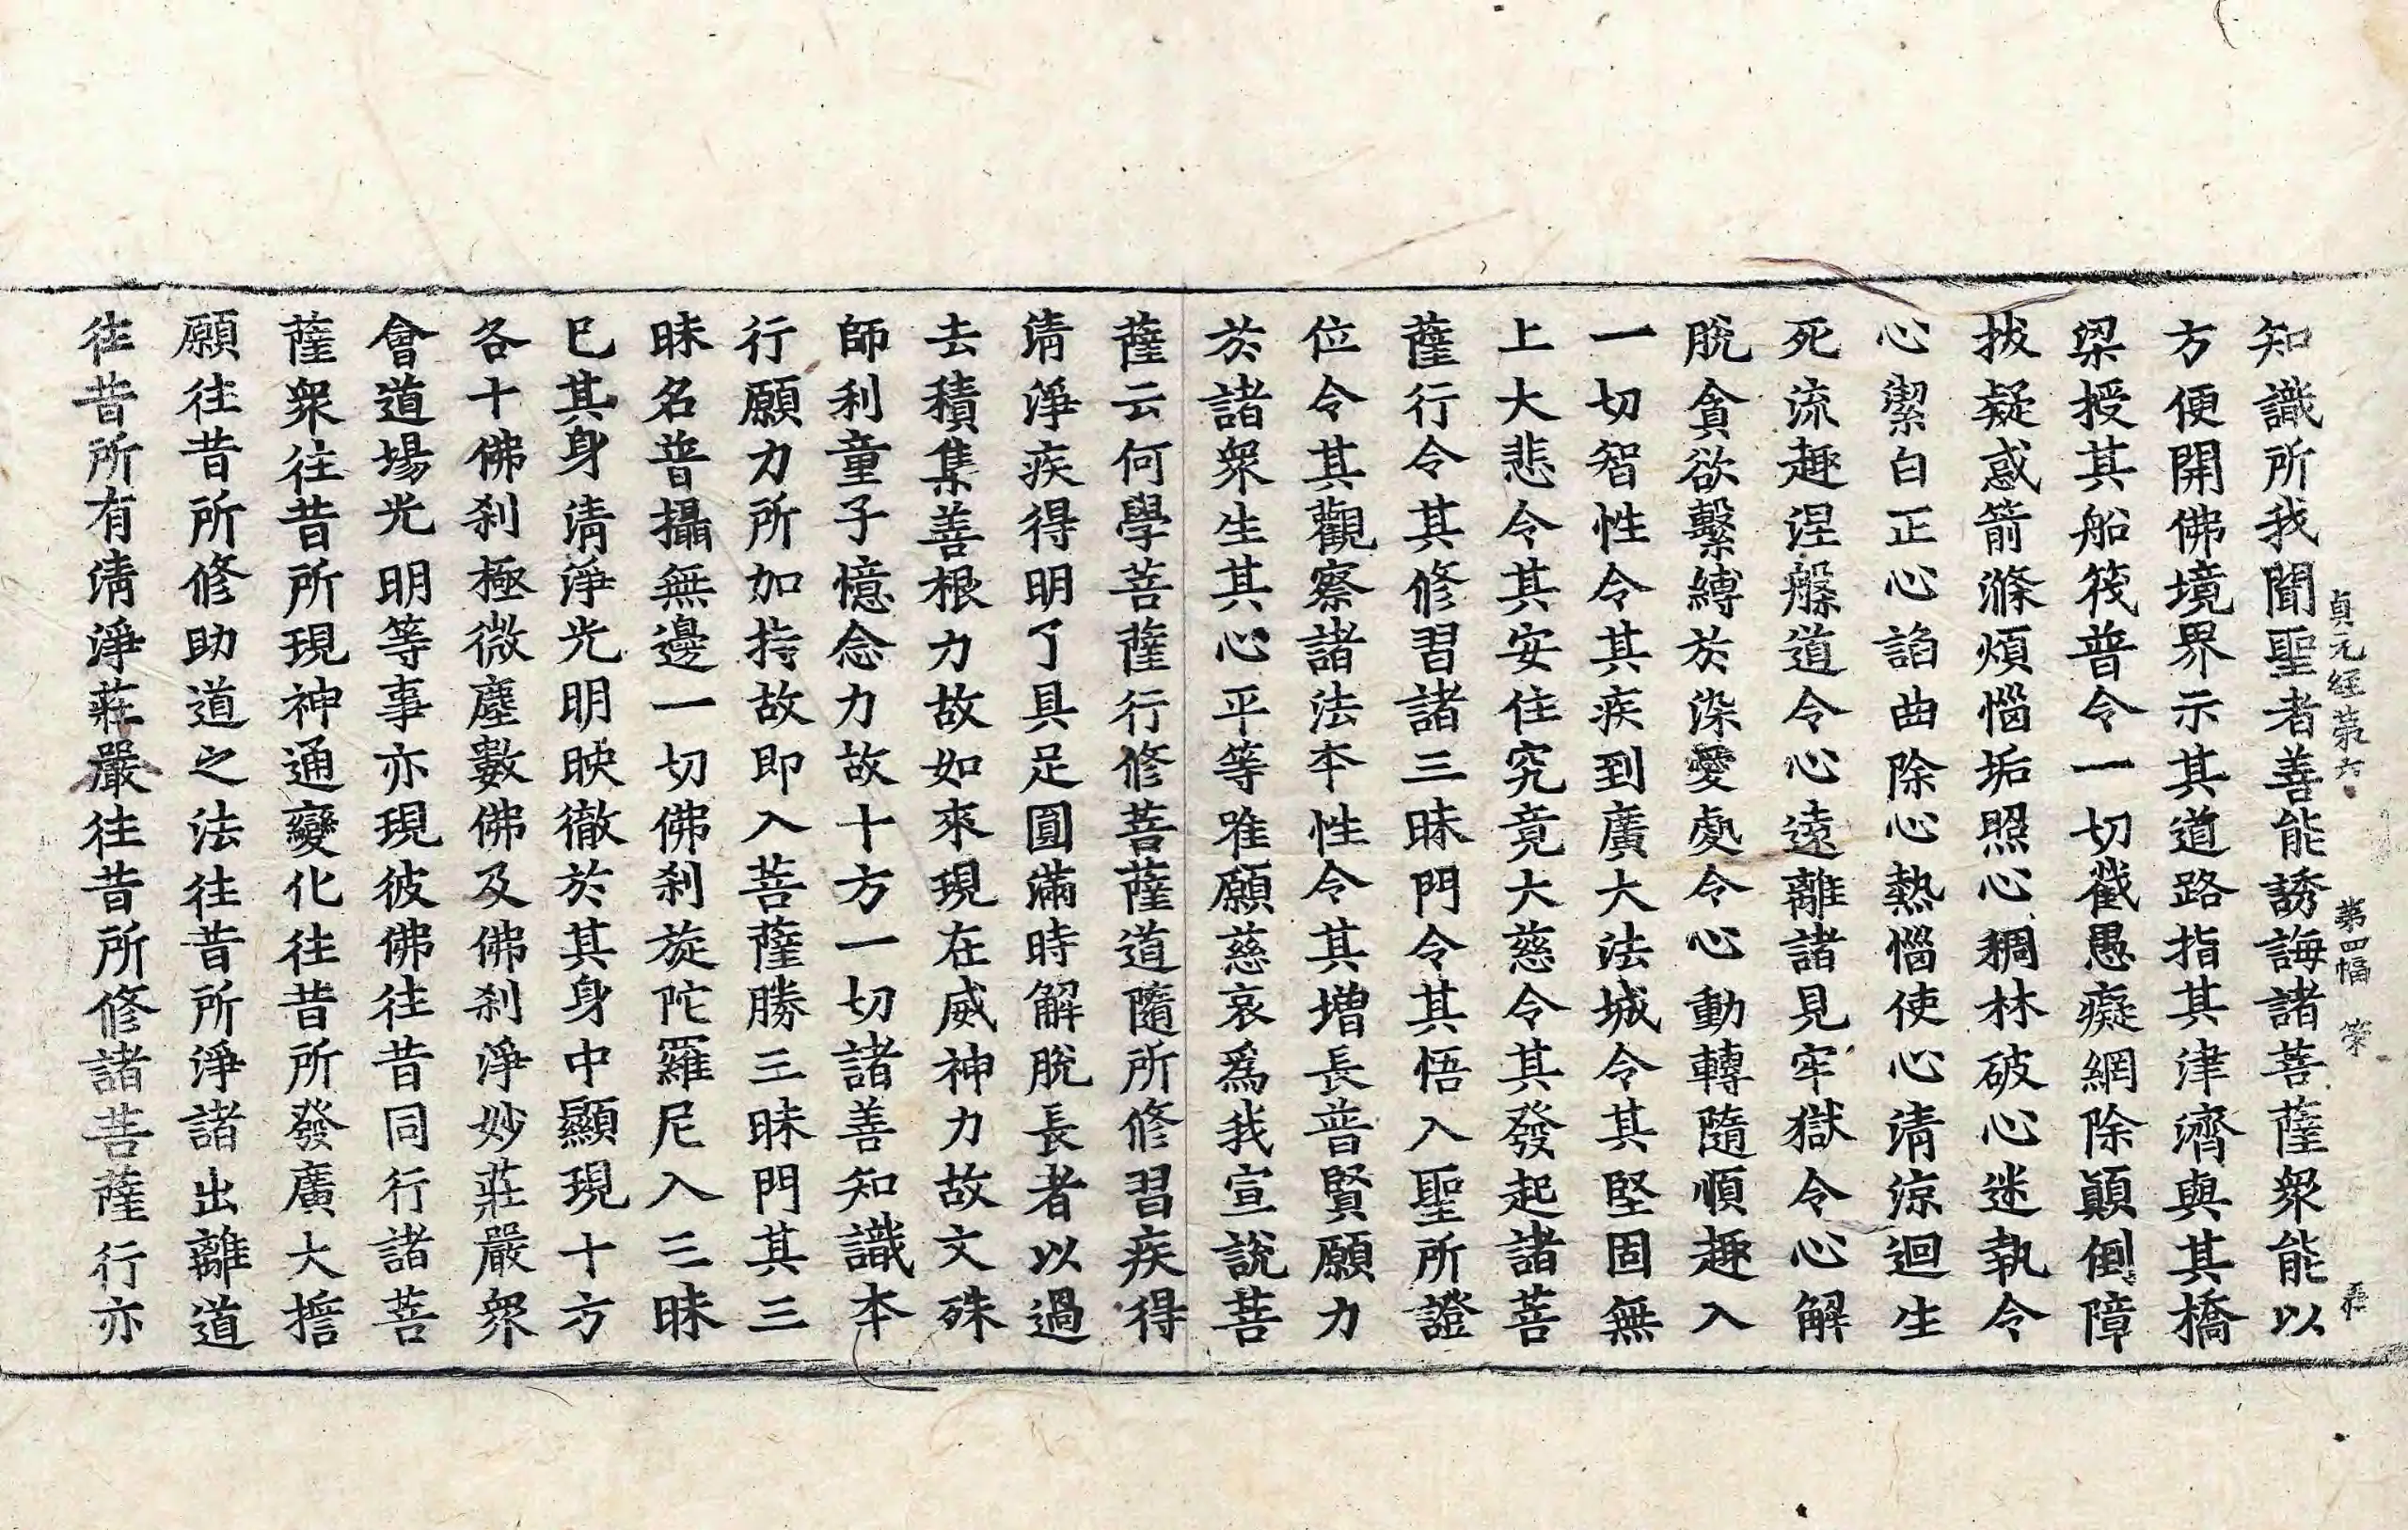 貞元經第六 第四幅 榮
知識所我聞聖者善能誘誨諸菩薩衆能以
方便開佛境界示其道路指其津濟與其橋
梁授其船筏普令一切截愚癡網除顚倒障
拔疑惑箭滌煩惱垢照心稠林破心迷執令
心潔白正心諂曲除心熱惱使心清涼迴生
死流趣涅槃道令心遠離諸見牢獄令心解
脫貪欲繫縛於染愛處令心動轉隨順趣入
一切智性令其疾到廣大法城令其堅固無
上大悲令其安住究竟大慈令其發起諸菩
薩行令其修習諸三昧門令其悟入聖所證
位令其觀察諸法本性令其增長普賢願力
於諸衆生其心平等唯願慈哀爲我宣說菩
薩云何學菩薩行修菩薩道隨所修習疾得
清淨疾得明了具足圓滿時解脫長者以過
去積集善根力故如來現在威神力故文殊
師利童子憶念力故十方一切諸善知識本
行願力所加持故即入菩薩勝三昧門其三
昧名普攝無邊一切佛剎旋陀羅尼入三昧
已其身清淨光明映徹於其身中顯現十方
各十佛剎極微塵數佛及佛剎淨妙莊嚴衆
會道場光明等事亦現彼佛往昔同行諸菩
薩衆往昔所現神通變化往昔所發廣大擔
願往昔所修助道之法往昔所淨諸出離道
往昔所有清淨莊嚴往昔所修諸菩薩行亦